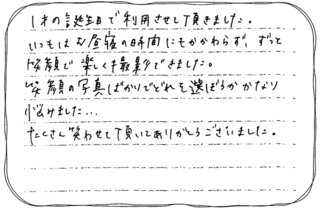 1才の誕生日で利用させて頂きました。
いつもはお昼寝の時間にもかかわらず、ずっと
笑顔で楽しく撮影できました。
笑顔の写真ばかりでどれを選ぼうかかなり
悩みました…
たくさん笑わせて頂いてありがとうございました。